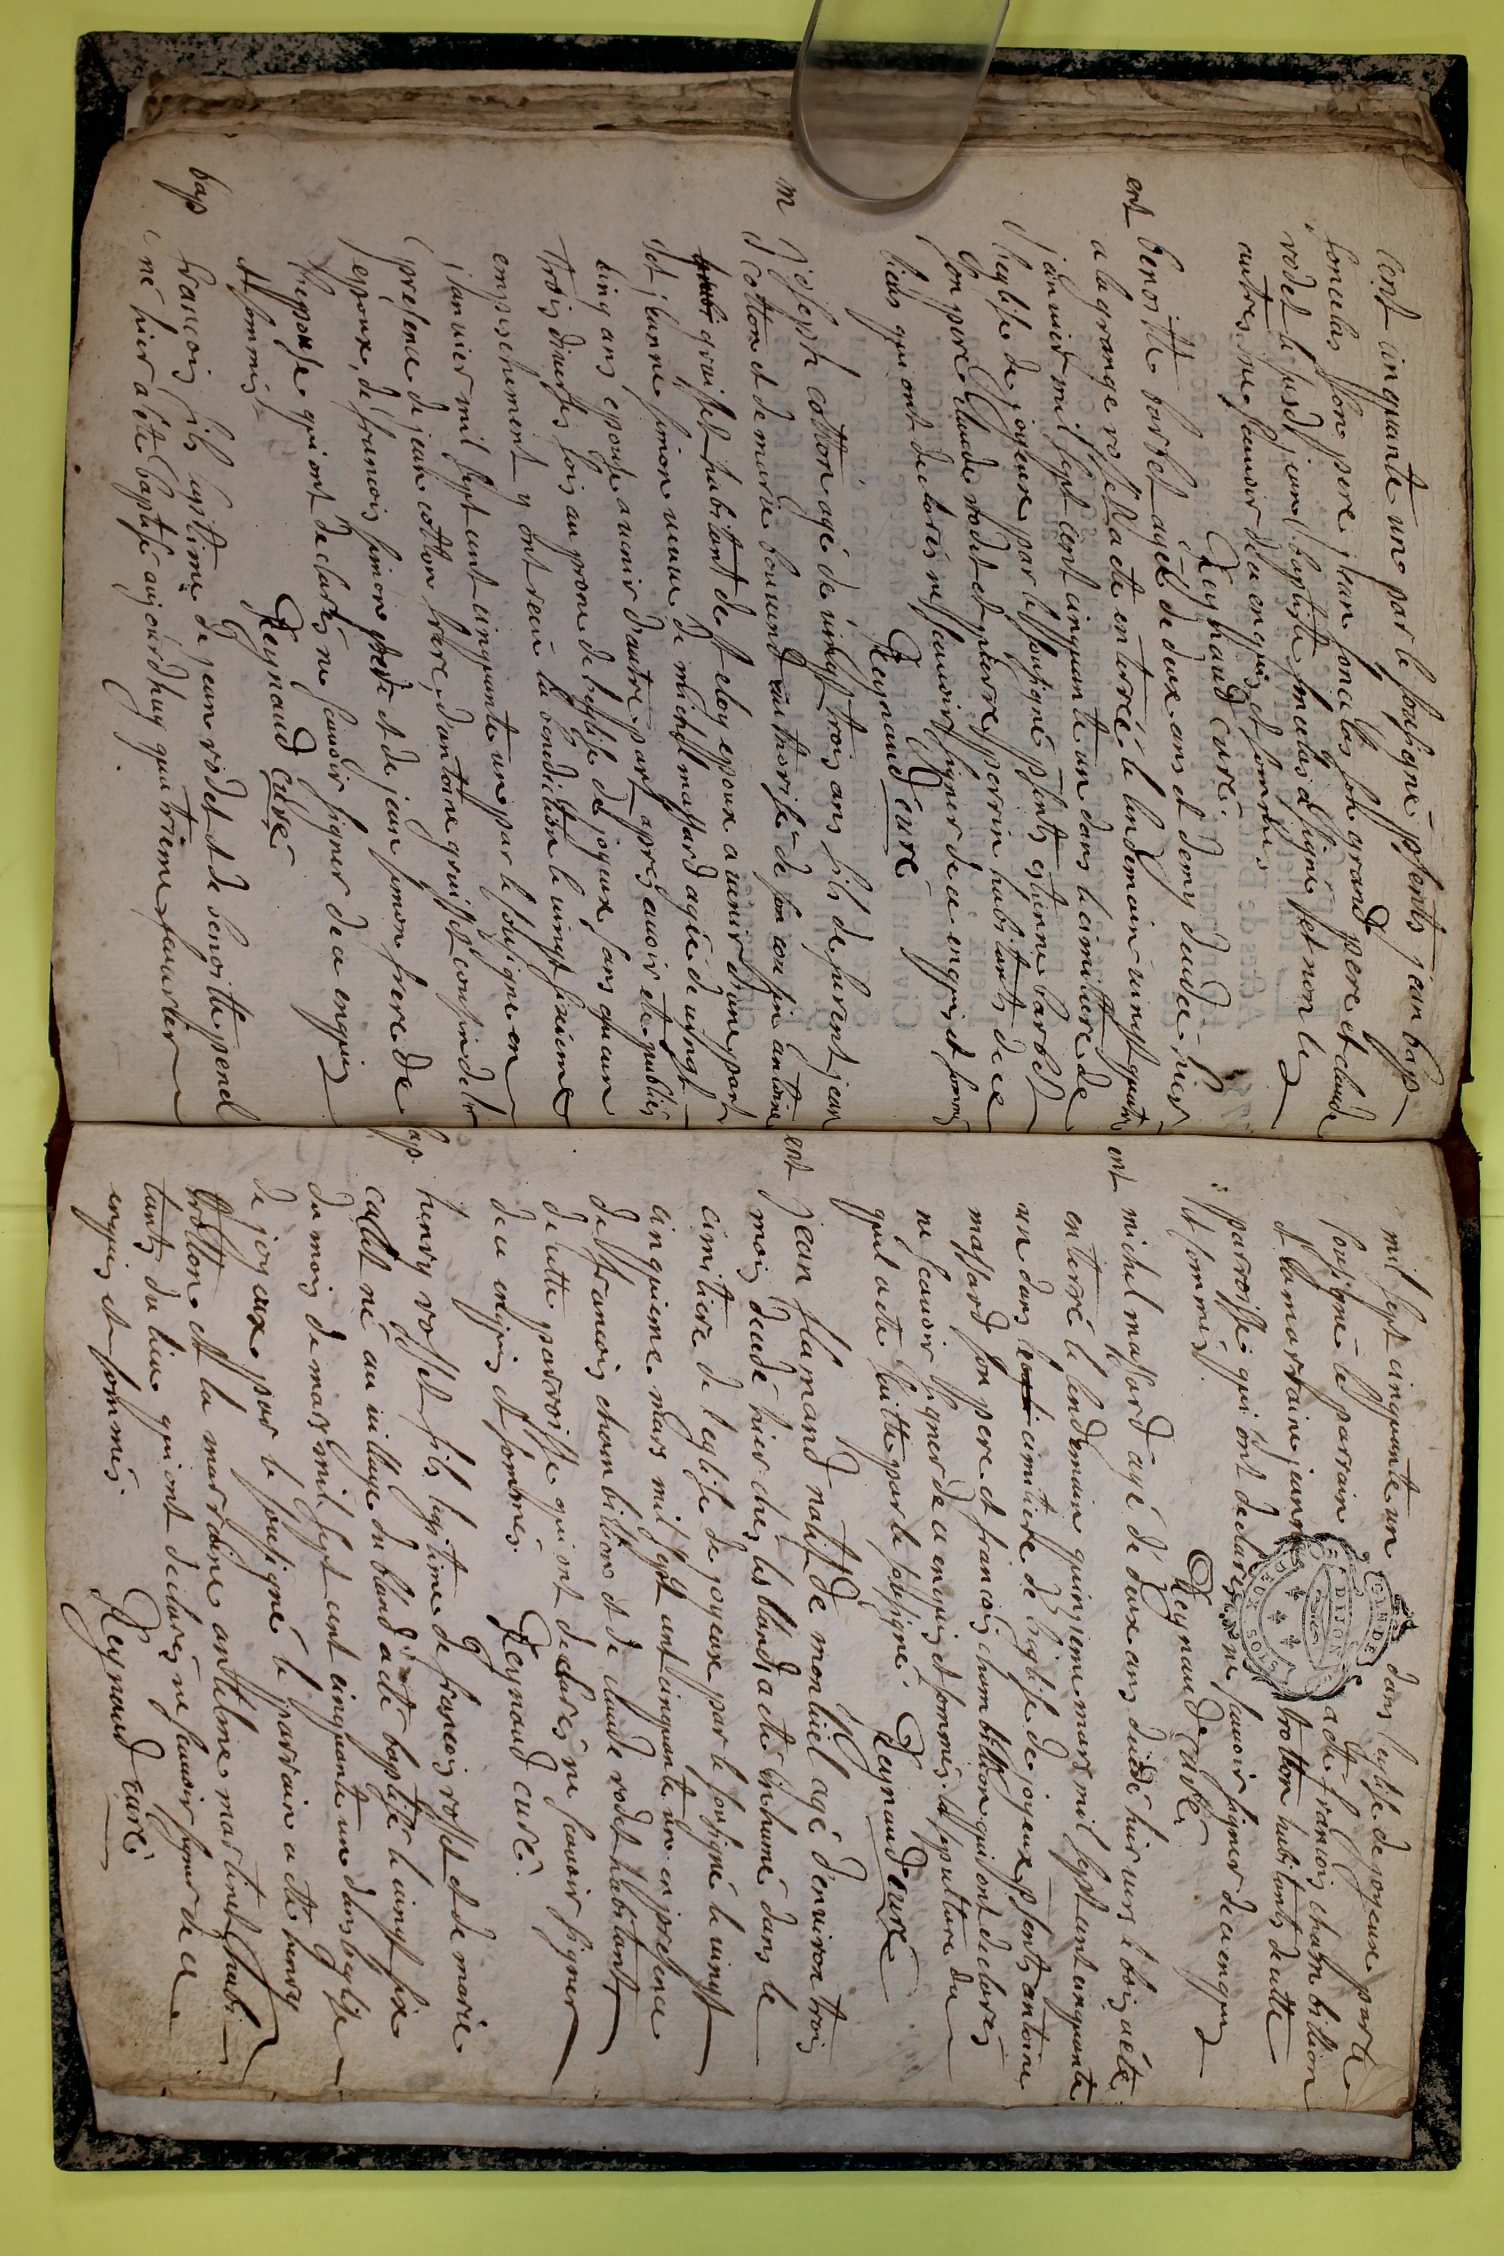 cent cinquante un par le soussigné pñts jean bap
foncelas son pere jean foncelas son grand pere et claude
rodet le susd jean baptiste foncelas a signé et non les
autres ne scavoir de ce enquis et sommés
Reynaud curé
ent benoitte barbet agée de deux ans et demy decedée hier
a la grange rosset a ete enterrée le lendemain vingt quatre
janvier mil sept cent cinquante un dans le cimitiere de
l'eglise de joyeux par le soussigné pñts estienne barbet
son pere claude rodet et pierre perrin habitants de ce
lieu qui ont declarés ne scavoir signer de ce enquis et sommés
Reynaud curé
m joseph cotton agé de vingt trois ans fils de furent jean
cotton et de marie bouvend authorisé de son cousin antoine
graisset habitant de st eloy epoux a venir d'une part
et jeanne simon veuve de michel massard agée de vingt
cinq ans epouse a venir d'autre part apres avoir eté publiés
trois diverses fois au prone de l'eglise de joyeux sans aucun
empeschement y ont receu la benediction le vingt sixieme
janvier mil sept cent cinquante un par le soussigné en
presence de jean cotton frere, d'antoine graisset cousin de l'
epoux, de francois simon pere et de jean simon frere de
l'epouse qui ont declarés ne scavoir signer de ce enquis
et sommés
Reynaud curé
bap francois fils legitime de jean rodet et de benoitte penel
né hier a ete baptisé aujourdhuy quatrieme fauvrier
mil sept cinquante un dans l'eglise de joyeux par le
soussigné le parrain a eté francois chambillion
et la marraine jeanne trotton habitants de cette
parroisse qui ont declarés ne scavoir signer de ce enquis
et sommés.
Reynaud curé
ent michel massard agé de deux ans decedé hier vers le bois a eté
enterré le lendemain quinzieme mars mil sept cent cinquante
un dans le cimitiere de l'eglise de joyeux pñsents antoine
massard son pere et francois chambillion qui ont declarés
ne scavoir signer de ce enquis et sommés la sepulture du
quel a ete faitte par le soussigné. Reynaud curé
ent jean flamand natif de montluel agé d'environ trois
mois decedé hier chez les bland a eté inhumé dans le
cimitiere de l'eglise de joyeux par le soussigné le vingt
cinquieme mars mil sept cent cinquante un en presence
de francois chambillion et de claude rodet habitants
de cette parroisse qui ont declarés ne scavoir signer
de ce enquis et sommés.
Reynaud curé.
bap. henry rosset fils legitime de francois rosset et de marie
callet né au village du bland a eté baptisé le vingt six
du mois de mars mil sept cent cinquante un dans l'eglise
de joyeux par le soussigné le parrain a eté henry
trotton et la marraine anttelme martinet habi
tants du lieu qui ont declarés ne scavoir signer de ce
enquis et sommés.
Reynaud curé
DIJON